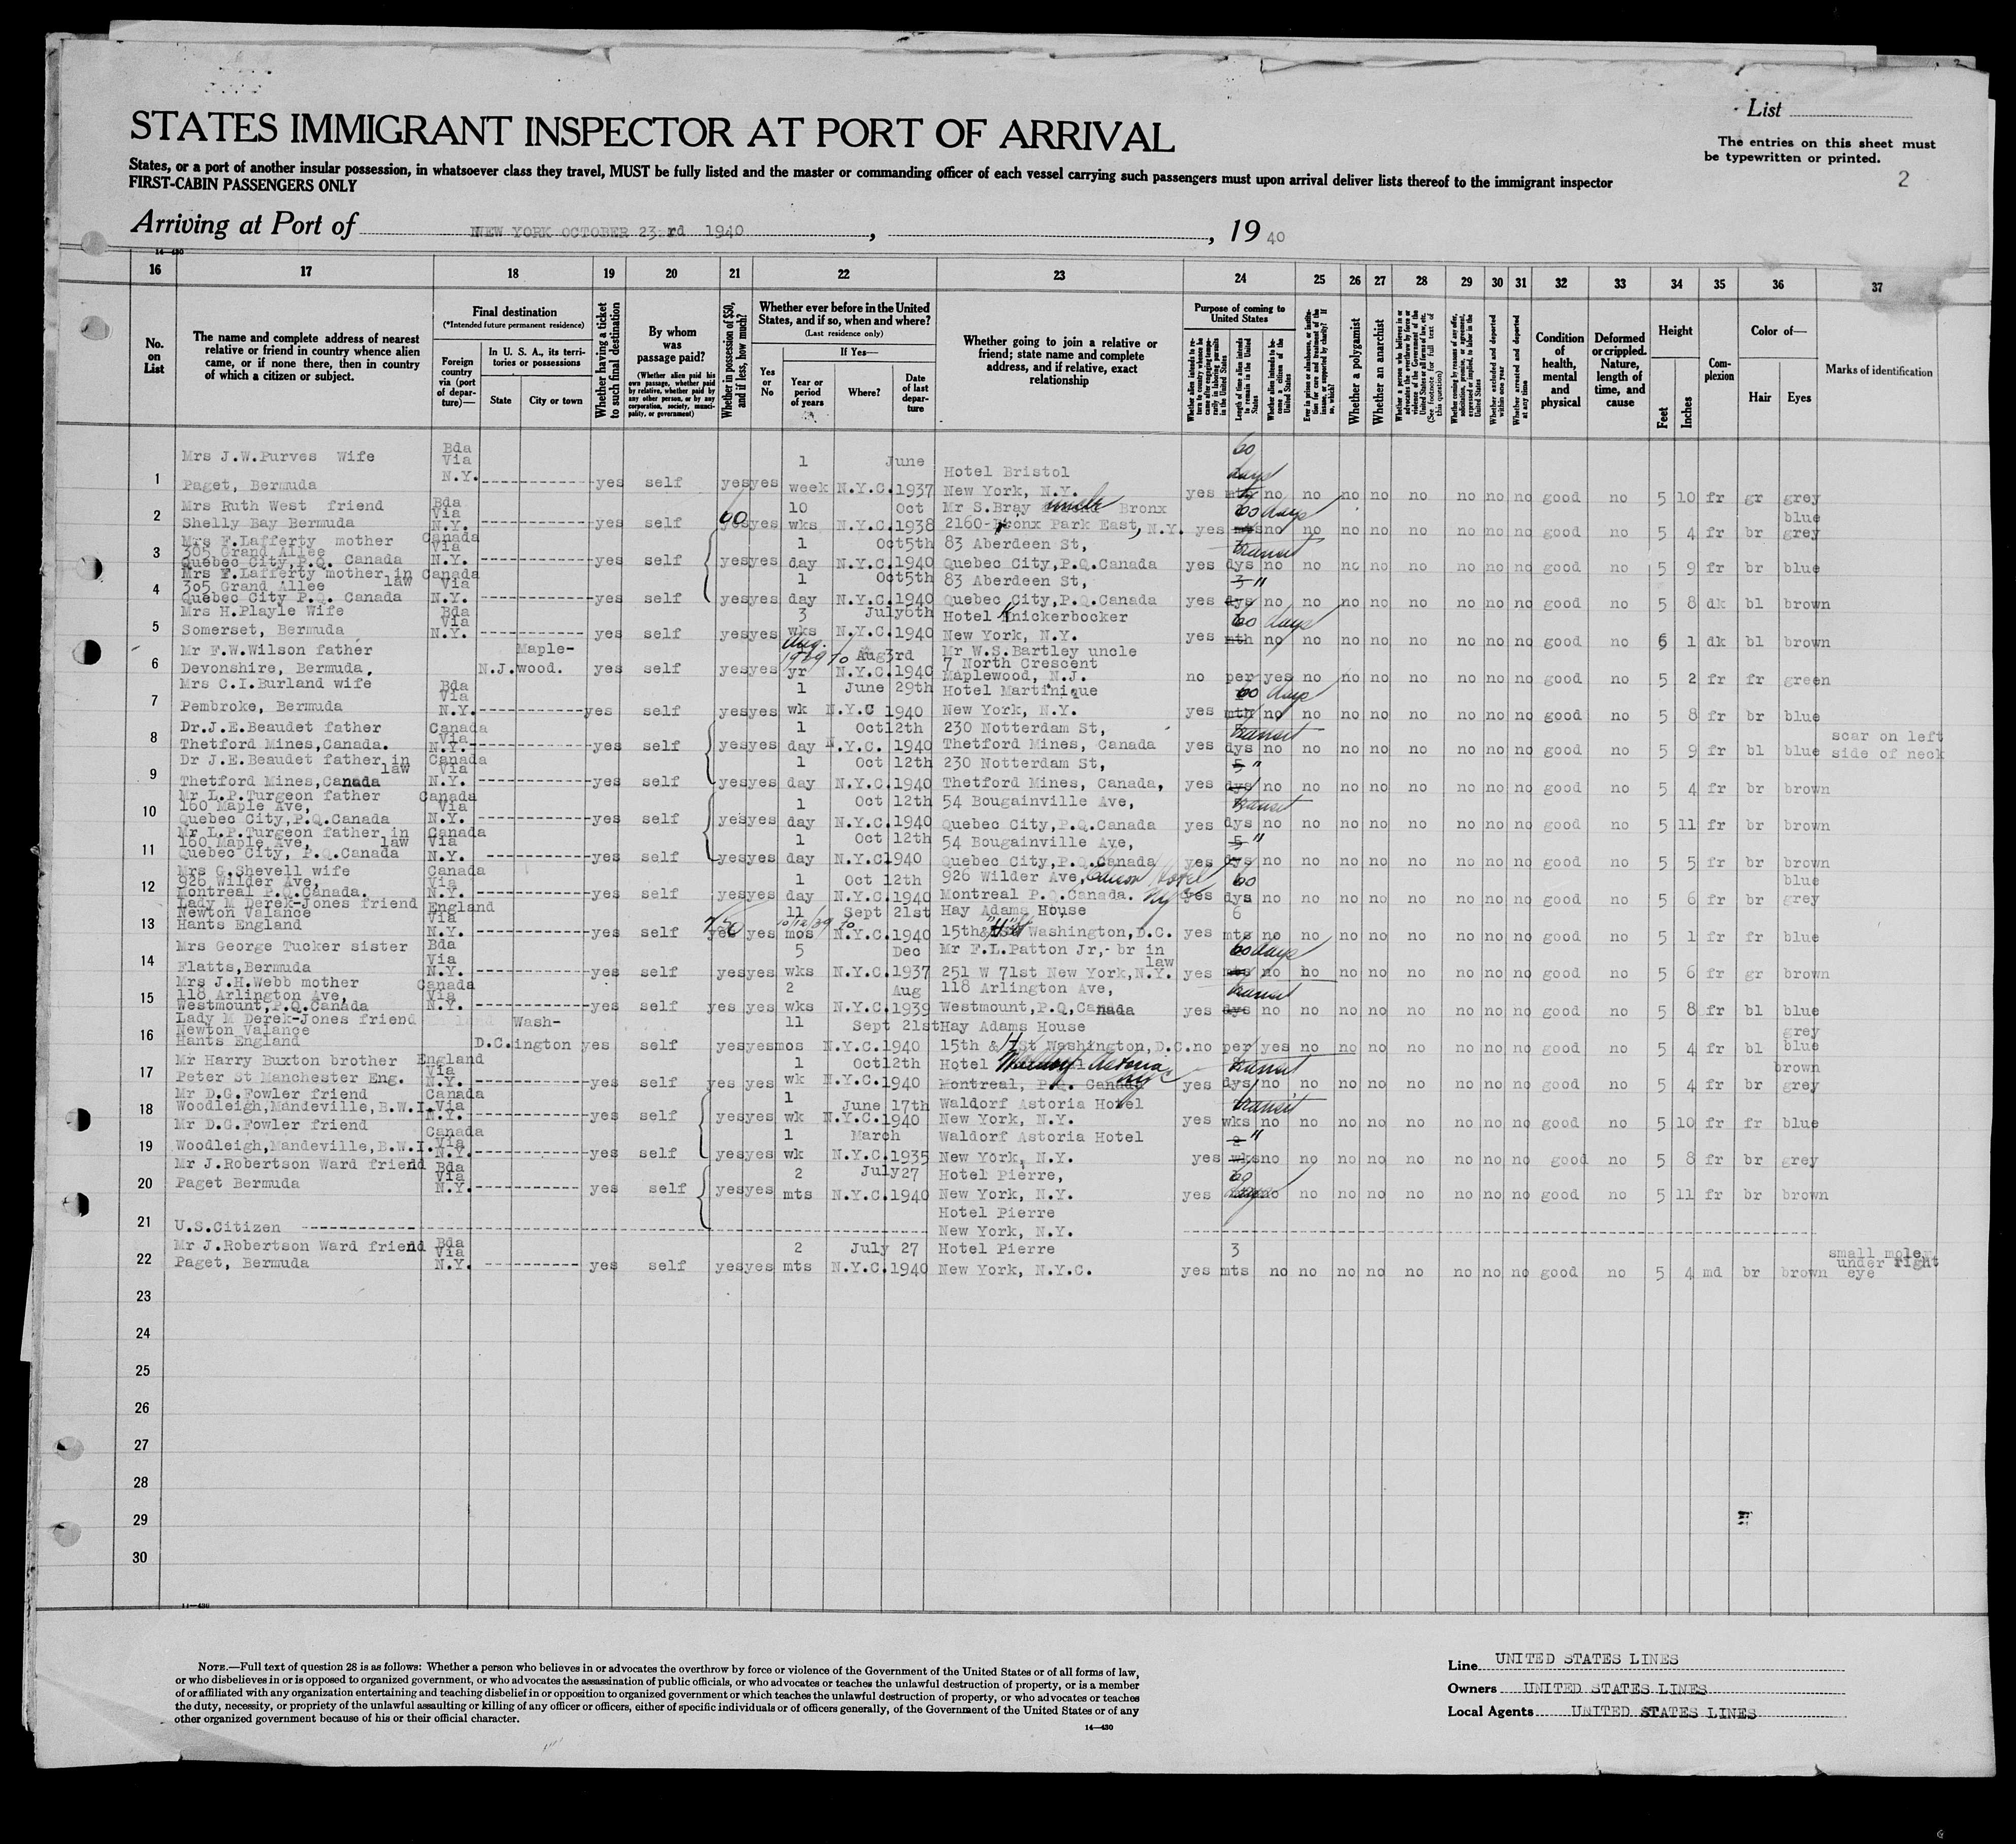 List
STATES IMMIGRANT INSPECTOR AT PORT OF ARRIVAL
The entries on this sheet must
be typewritten or printed.
States, or a port of another insular possession, in whatsoever class they travel, MUST be fully listed and the master or commanding officer of each vessel carrying such passengers must upon arrival deliver lists thereof to the immigrant inspector
FIRST-CABIN PASSENGERS ONLY
2
Arriving at Port of NEW YORK OCTOBER 23rd 1940, , 19 40
14—430
16 17 18 19 20 21 22 23 24 25 26 27 28 29 30 31 32 33 34 35 36 37
No. on List
The name and complete address of nearest relative or friend in country whence alien came, or if none there, then in country of which a citizen or subject.
Final destination
(*Intended future permanent residence)
Foreign country via (port of departure)—
In U. S. A., its territories or possessions
State
City or town
Whether having a ticket to such final destination
By whom was passage paid?
(Whether alien paid his own passage, whether paid by relative, whether paid by any other person, or by any corporation, society, municipality, or government)
Whether in possession of $50, and if less, how much?
Whether ever before in the United States, and if so, when and where?
(Last residence only)
Yes or No
If Yes—
Year or period of years
Where?
Date of last departure
Whether going to join a relative or friend; state name and complete address, and if relative, exact relationship
Purpose of coming to United States
Whether alien intends to return to country whence he came after engaging temporarily in laboring pursuits in the United States
Length of time alien intends to remain in the United States
Whether alien intends to become a citizen of the United States
Whether a polygamist
Whether an anarchist
Whether excluded and deported within one year
Whether arrested and deported at any time
Condition of health, mental and physical
Deformed or crippled. Nature, length of time, and cause
Height
Feet
Inches
Complexion
Color of—
Hair
Eyes
Marks of identification
1 Mrs J.W.Purves Wife Paget, Bermuda Bda Via N.Y. yes self yes yes 1 week N.Y.C. June 1937 Hotel Bristol New York, N.Y. yes 60 days mth no no no no no no no no good no 5 10 fr gr grey
2 Mrs Ruth West friend Shelly Bay Bermuda Bda Via N.Y. yes self 60 yes yes 10 wks N.Y.C. Oct 1938 Mr S.Bray uncle Bronx 2160-Bronx Park East, N.Y. yes 60 days mts no no no no no no no no good no 5 4 fr br blue grey
3 Mrs F.Lafferty mother 305 Grand Allee Quebec City,P.Q. Canada Canada Via N.Y. yes self yes yes 1 day N.Y.C. Oct5th 1940 83 Aberdeen St, Quebec City,P.Q.Canada yes transit dys no no no no no no no no good no 5 9 fr br blue
4 Mrs F.Lafferty mother in law 305 Grand Allee Quebec City P.Q. Canada Canada Via N.Y. yes self yes yes 1 day N.Y.C. Oct5th 1940 83 Aberdeen St, Quebec City,P.Q.Canada yes 3 " dys no no no no no no no no good no 5 8 dk bl brown
5 Mrs H.Playle Wife Somerset, Bermuda Bda Via N.Y. yes self yes yes 3 wks N.Y.C. July6th 1940 Hotel Knickerbocker New York, N.Y. yes 60 days mth no no no no no no no no good no 6 1 dk bl brown
6 Mr F.W.Wilson father Devonshire, Bermuda, N.J. Maple-wood. yes self yes yes Aug. 1939 to yr N.Y.C. Aug3rd 1940 Mr W.S.Bartley uncle 7 North Crescent Maplewood, N.J. no per yes no no no no no no no good no 5 2 fr fr green
7 Mrs C.I.Burland wife Pembroke, Bermuda Bda Via N.Y. yes self yes yes 1 wk N.Y.C June 29th 1940 Hotel Martinique New York, N.Y. yes 60 days mth no no no no no no no no good no 5 8 fr br blue
8 Dr.J.E.Beaudet father Thetford Mines,Canada. Canada Via N.Y. yes self yes yes 1 day N.Y.C. Oct12th 1940 230 Notterdam St, Thetford Mines, Canada yes transit dys no no no no no no no no good no 5 9 fr bl blue scar on left side of neck
9 Dr J.E.Beaudet father in law Thetford Mines,Canada Canada Via N.Y. yes self yes yes 1 day N.Y.C. Oct 12th 1940 230 Notterdam St, Thetford Mines, Canada, yes 5 " dys no no no no no no no no good no 5 4 fr br brown
10 Mr L.P.Turgeon father 160 Maple Ave, Quebec City,P.Q.Canada Canada Via N.Y. yes self yes yes 1 day N.Y.C. Oct 12th 1940 54 Bougainville Ave, Quebec City,P.Q.Canada yes transit dys no no no no no no no no good no 5 11 fr br brown
11 Mr L.P.Turgeon father in law 160 Maple Ave, Quebec City, P.Q.Canada Canada Via N.Y. yes self yes yes 1 day N.Y.C Oct 12th 1940 54 Bougainville Ave, Quebec City,P.Q.Canada yes 5 " dys no no no no no no no no good no 5 5 fr br brown
12 Mrs G.Shevell wife 926 Wilder Ave, Montreal P.Q.Canada. Canada Via N.Y. yes self yes yes 1 day N.Y.C. Oct 12th 1940 926 Wilder Ave, Montreal P.Q.Canada. Hotel NYC yes 60 dys no no no no no no no no good no 5 6 fr br blue grey
13 Lady M Derek-Jones friend Newton Valance Hants England England Via N.Y. yes self yes yes 10/12/39 to 11 mos N.Y.C. Sept 21st 1940 Hay Adams House 15th& "H" St Washington,D.C. yes 6 mts no no no no no no no no good no 5 1 fr fr blue
14 Mrs George Tucker sister Flatts,Bermuda Bda Via N.Y. yes self yes yes 5 wks N.Y.C. Dec 1937 Mr F.L.Patton Jr,- br in law 251 W 71st New York,N.Y. yes 60 days no no no no no no no no good no 5 6 fr gr brown
15 Mrs J.H.Webb mother 118 Arlington Ave, Westmount,P.Q.Canada Canada Via N.Y. yes self yes yes 2 wks N.Y.C. Aug 1939 118 Arlington Ave, Westmount,P.Q,Canada yes transit dys no no no no no no no no good no 5 8 fr bl blue
16 Lady M Derek-Jones friend Newton Valance Hants England D.C. Wash-ington yes self yes yes 11 mos N.Y.C. Sept 21st 1940 Hay Adams House 15th & H St Washington,D.C. no per yes no no no no no no no good no 5 4 fr bl grey blue
17 Mr Harry Buxton brother Peter St Manchester Eng. England Via N.Y. yes self yes yes 1 wk N.Y.C. Oct12th 1940 Hotel Waldorf Astoria NYC Montreal, P.Q. Canada yes transit dys no no no no no no no no good no 5 4 fr br brown grey
18 Mr D.G.Fowler friend Woodleigh,Mandeville,B.W.I. Canada Via N.Y. yes self yes yes 1 wk N.Y.C. June 17th 1940 Waldorf Astoria Hotel New York, N.Y. yes transit wks no no no no no no no no good no 5 10 fr fr blue
19 Mr D.G.Fowler friend Woodleigh,Mandeville,B.W.I. Canada Via N.Y. yes self yes yes 1 wk N.Y.C. March 1935 Waldorf Astoria Hotel New York, N.Y. yes 2 " wks no no no no no no no no good no 5 8 fr br grey
20 Mr J.Robertson Ward friend Paget Bermuda Bda Via N.Y. yes self yes yes 2 mts N.Y.C. July27 1940 Hotel Pierre, New York, N.Y. yes 60 days no no no no no no no no good no 5 11 fr br brown
21 U.S.Citizen Hotel Pierre New York, N.Y.
22 Mr J.Robertson Ward friend Paget, Bermuda Bda Via N.Y. yes self yes yes 2 mts N.Y.C. July 27 1940 Hotel Pierre New York, N.Y.C. yes 3 mts no no no no no no no no good no 5 4 md br brown small mole under right eye
23
24
25
26
27
28
29
30
14—430
NOTE.—Full text of question 28 is as follows: Whether a person who believes in or advocates the overthrow by force or violence of the Government of the United States or of all forms of law,
or who disbelieves in or is opposed to organized government, or who advocates the assassination of public officials, or who advocates or teaches the unlawful destruction of property, or is a member
of or affiliated with any organization entertaining and teaching disbelief in or opposition to organized government or which teaches the unlawful destruction of property, or who advocates or teaches
the duty, necessity, or propriety of the unlawful assaulting or killing of any officer or officers, either of specific individuals or of officers generally, of the Government of the United States or of any
other organized government because of his or their official character.
14—430
Line UNITED STATES LINES
Owners UNITED STATES LINES
Local Agents UNITED STATES LINES